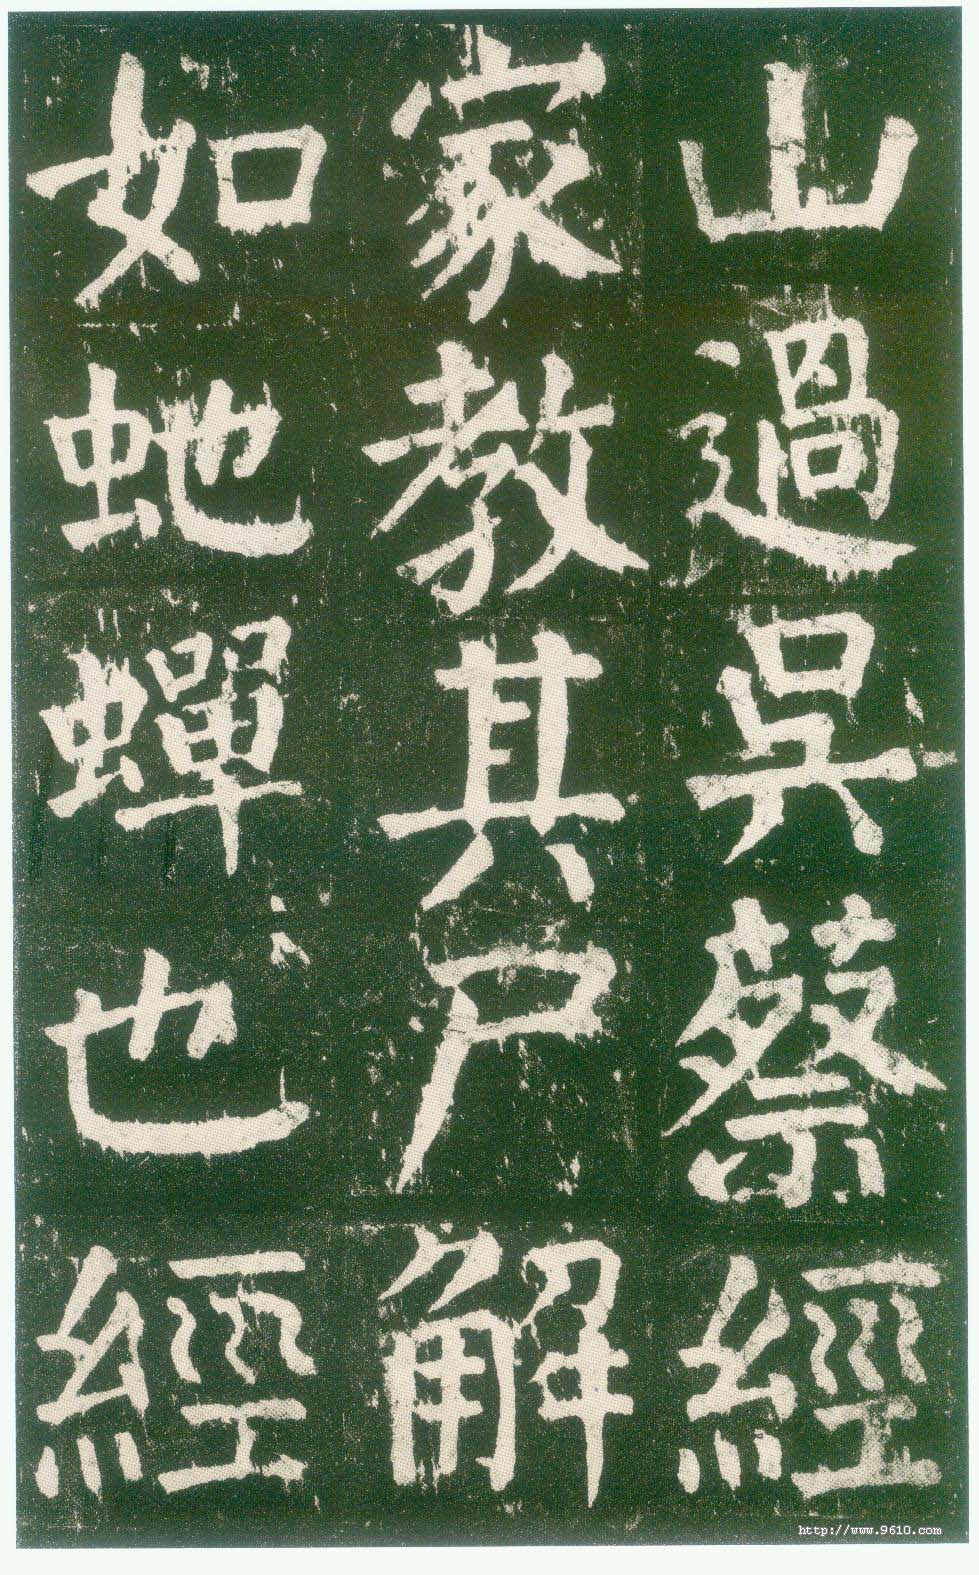 山過吳蔡經
家教其尸解
如虵蟬也經
http://www.9610.com